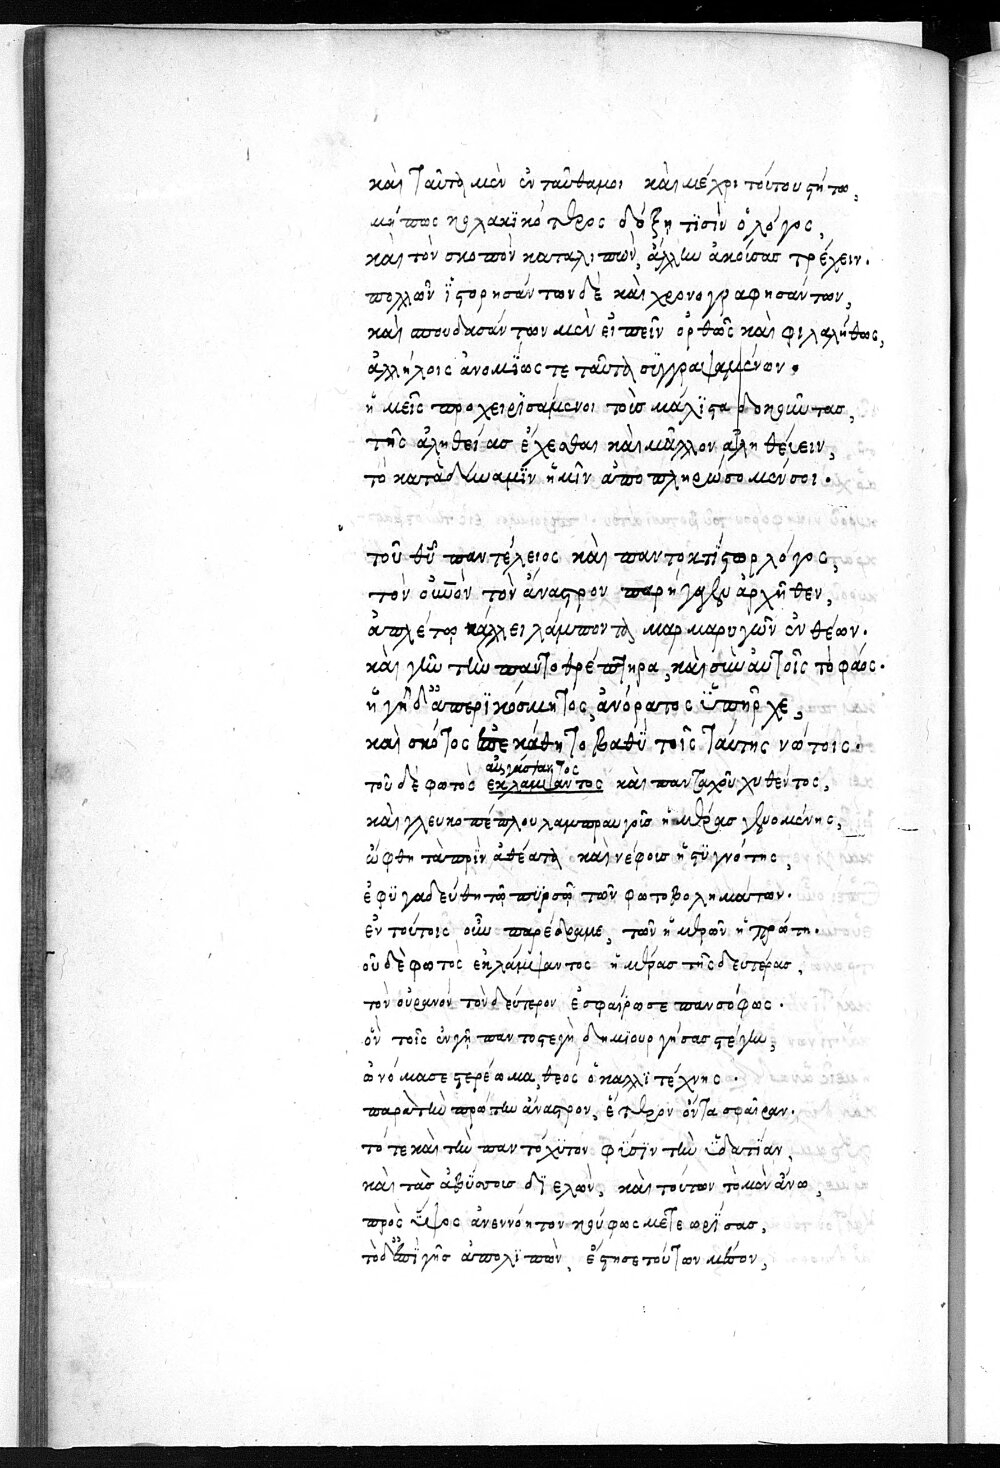 καὶ ταῦτα μὲν ἐνταῦθά μοι καὶ μέχρι τούτου στήτω,
μήπως κολακικότερος δόξῃ τισὶν ὁ λόγος,
καὶ τὸν σκοπὸν καταλιπὼν, ἄλλην ἀκούσας τρέχειν.
πολλῶν ἱστορησάντων δὲ καὶ χρονογραφησάντων,
καὶ σπουδασάντων μὲν εἰπεῖν ὀρθῶς καὶ φιλαλήθως,
ἀλλήλοις ἀνομοίως τε ταῦτα συγγραψαμένων.
ἡμεῖς προχειρισάμενοι τοὺς μάλιστα δοκοῦντας,
τῆς ἀληθείας ἔχεσθαι καὶ μᾶλλον ἀληθεύειν,
τὸ κατὰ δύναμιν ἡμῖν ἀποπληρώσομέν σοι.
τοῦ θῦ παντέλειος καὶ παντοκτίστωρ λόγος,
τὸν οὐνὸν τὸν ἄναστρον παρήγαγεν ἀρχῆθεν,
ἀπλέτῳ κάλλει λάμποντα μαρμαρυγῶν ἐνθέων.
καὶ γῆν τὴν παντοθρέπτειρα, καὶ σὺν αὐτοῖς τὸ φάος.
ἡ γῆ δ' ἀπερικόσμητος, ἀνόρατος ὑπῆρχε,
καὶ σκότος ἐπεκάθητο βαθὺ τοῖς ταύτης νώτοις.
αὐγάσαντος
τοῦ δὲ φωτὸς ἐκλάμψαντος καὶ πανταχοῦ χυθέντος,
καὶ γλευκοπέπλου λαμπραυγοῦς ἡμέρας γενομένης,
ὤφθη τὰ πρὶν ἀθέατα καὶ νέφους ἡ στυγνότης,
ἐφυγαδεύθη τῷ πυρσῷ τῶν φωτοβολημάτων.
ἐν τούτοις οὖν παρέδραμε, τῶν ἡμερῶν ἡ πρώτη.
οὗ δὲ φωτὸς ἐκλάμψαντος ἡμέρας τῆς δευτέρας,
τὸν οὐρανὸν τὸν δεύτερον ἐσφαίρωσε πανσόφως.
ὃν τοῖς ἐν γῇ παντοστεγῆ δημιουργήσας στέγην,
ὠνόμασε στερέωμα, θεὸς ὁ καλλιτέχνης.
παρὰ τὴν πρώτην ἄναστρον, ἕτερον ὄντα σφαῖραν.
τότε καὶ τὴν παντόχυτον φύσιν τὴν ὑδατίαν,
καὶ τὰς ἀβύσσους διελὼν, καὶ τούτων τὸ μὲν ἄνω,
πρὸς ὕψος ἀνεννόητον κούφως μετεωρίσας,
τὸ δ' ἐπὶ γῆς ἀπολιπὼν, ἔστησε τούτων μέσον,